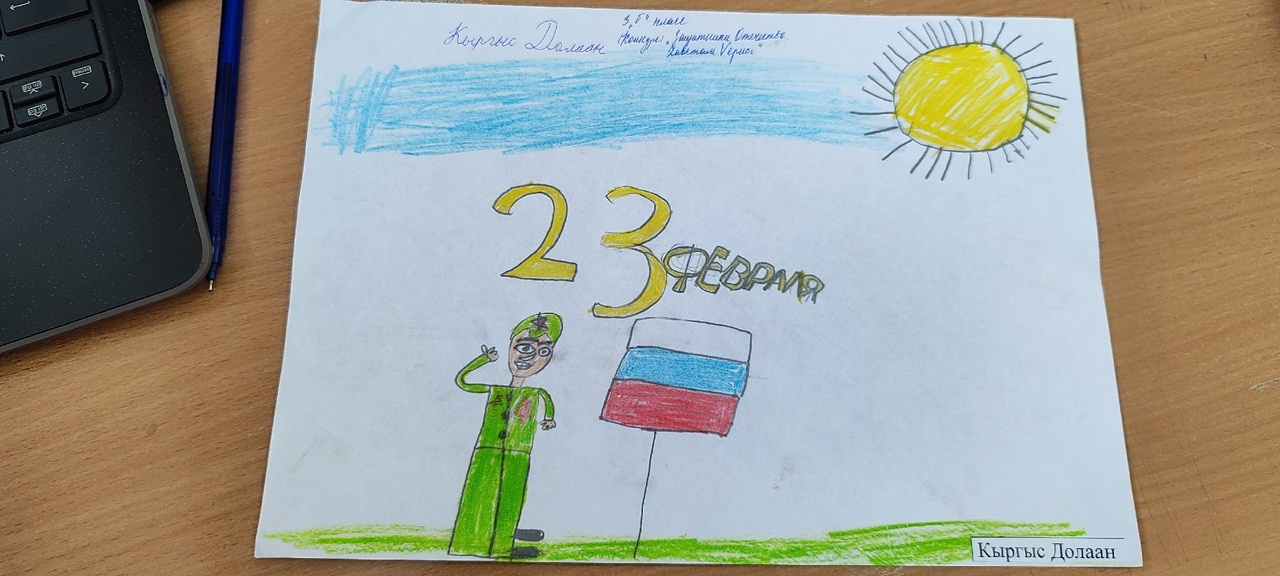 Кыргыс Долаан
3 "б" класс
Конкурс „Защитники Отечества
23
ФЕВРАЛЯ
Кыргыс Долаан